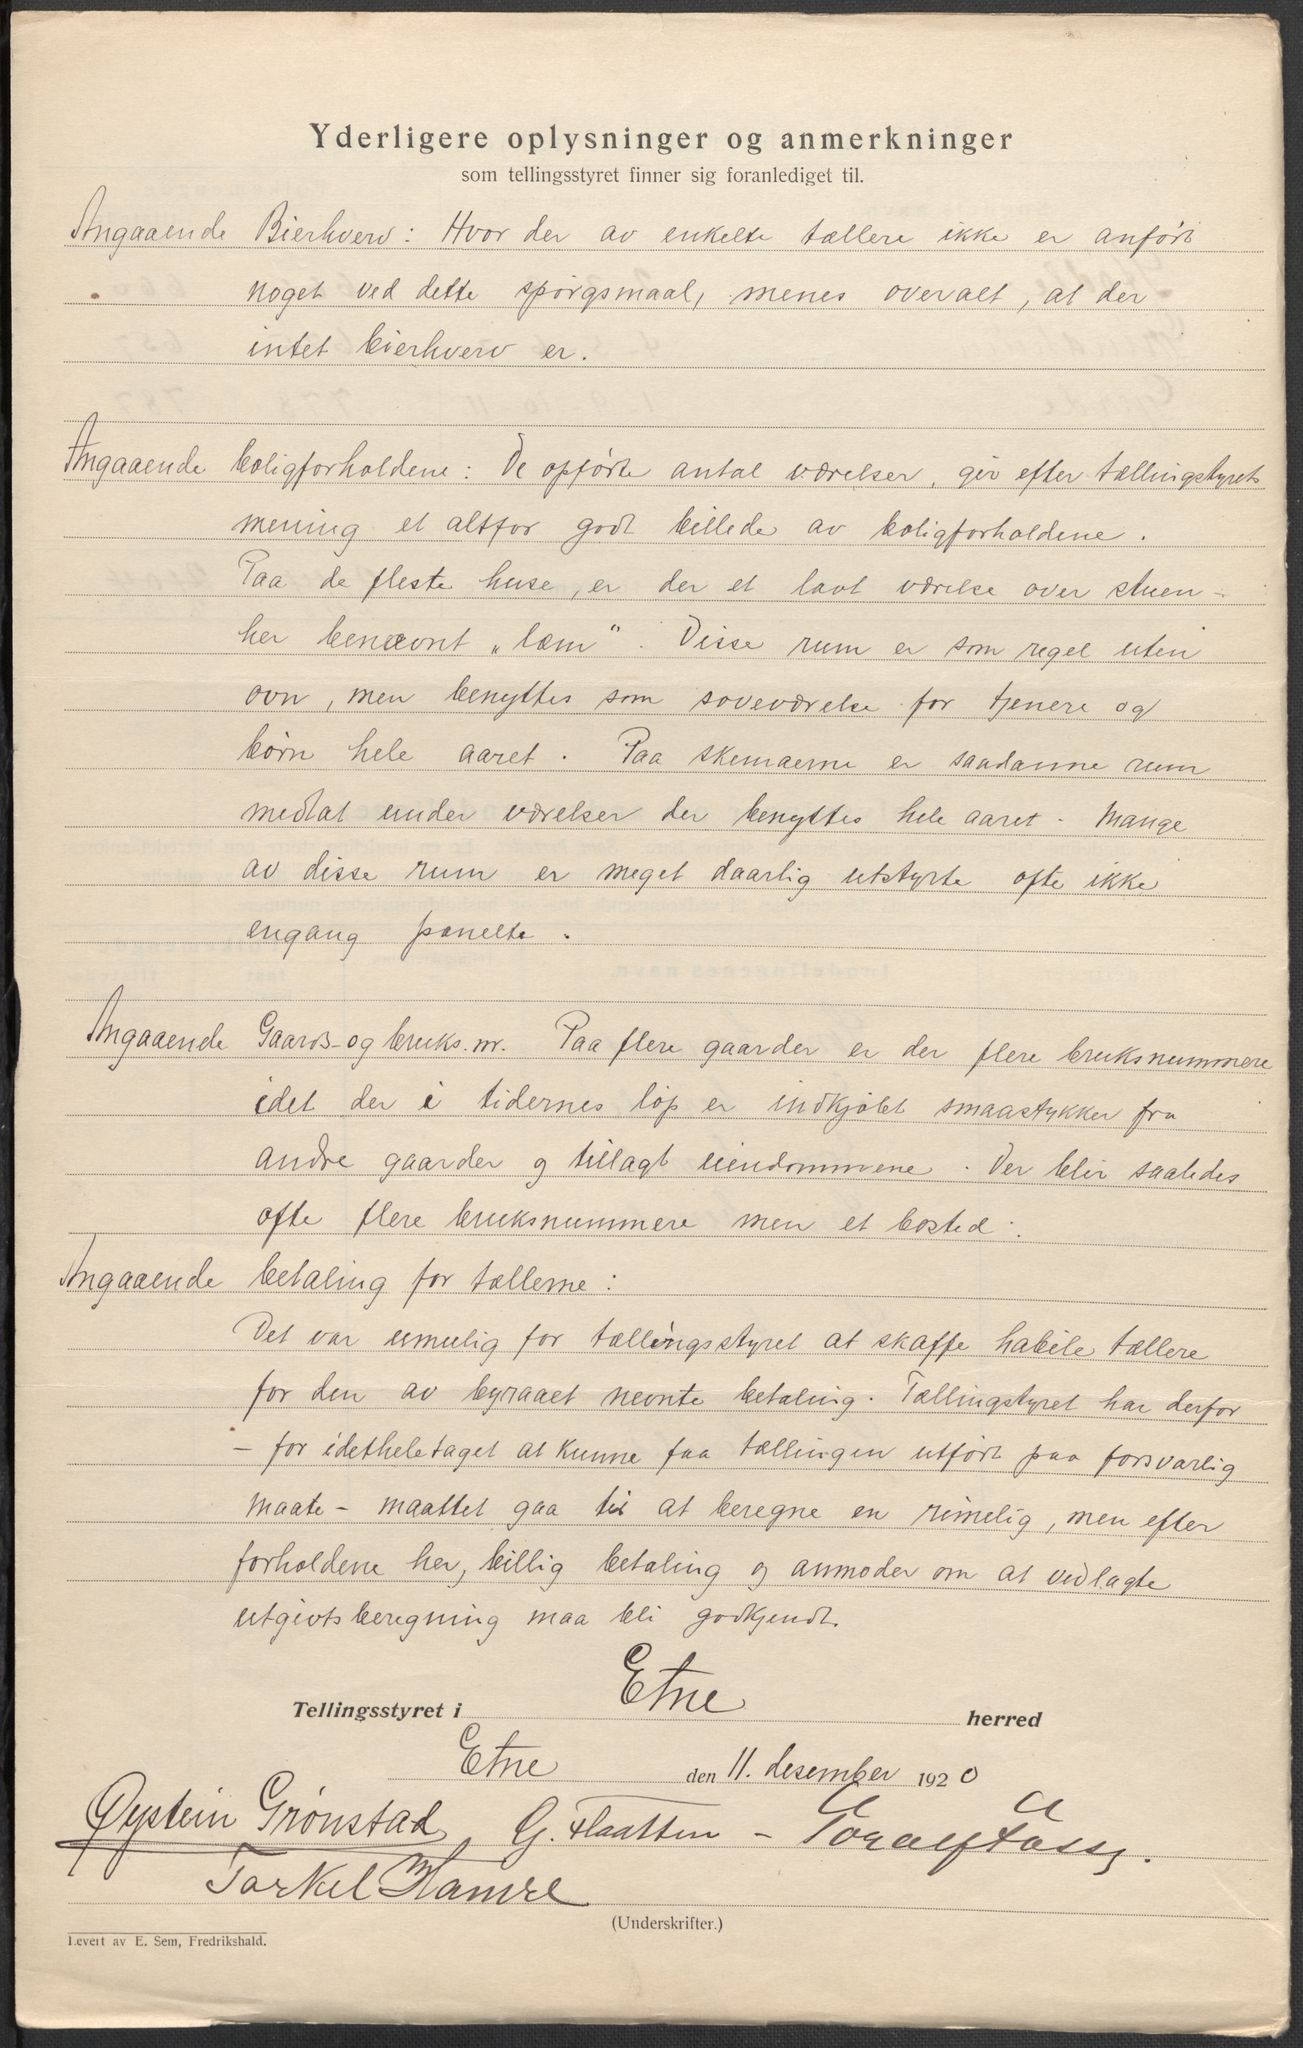 Yderligere oplysninger og anmerkninger
som tellingsstyret finner sig foranlediget til.
Angaaende Bierhverv: Hvor der av enkelte tællere ikke er anført
noget ved dette spørgsmaal, menes overalt, at der
intet bierhverv er.
Angaaende boligforholdene: De opførte antal værelser, gir efter tællingstyrets
mening et altfor godt billede av boligforholdene.
Paa de fleste huse, er der et lavt værelse over stuen -
her benævnt „lem". Disse rum er som regel uten
ovn, men benyttes som soveværelse for tjenere og
børn hele aaret. Paa skemaerne er saadanne rum
medtat under værelser der benyttes hele aaret - Mange
av disse rum er meget daarlig utstyrte ofte ikke
engang panelte.
Angaaende Gaards- og bruks. nr. Paa flere gaarder er der flere bruksnummere
idet der i tidernes løp er indkjøbt smaastykker fra
andre gaarder og tillagt eiendommene. Der blir saaledes
ofte flere bruksnummere men et bosted.
Angaaende betaling for tællerne:
Det var umulig for tællingsstyret at skaffe habile tællere
for den av byraaet nevnte betaling. Tællingstyret har derfor
- for idetheletaget at kunne faa tællingen utført paa forsvarlig
maate - maattet gaa til at beregne en rimelig, men efter
forholdene her, billig betaling og anmoder om at vedlagte
utgivtsberegning maa bli godkjendt.
Tellingsstyret i Etne herred
Etne den 11. desember 1920
Øystein Grønstad G. Flaatten - Toralf
Torkel Hamre
(Underskrifter.)
Levert av E. Sem, Fredrikshald.